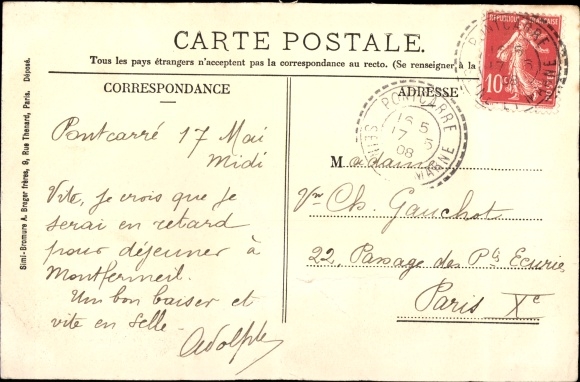 CARTE POSTALE.
Tous les pays étrangers n'acceptent pas la correspondance au recto. (Se renseigner à la
CORRESPONDANCE
Pontcarré 17 Mai
Midi
Vite, je crois que je
serai en retard
pour déjeuner à
Montfermeil.
Un bon baiser et
vite en selle.
Adolphe
Simi-Bromure A. Breger frères, 9, Rue Thenard, Paris. Déposé.
ADRESSE
Madame
Vve Ch. Gauchot
22, Passage des Ptes Ecuries
Paris Xe
PONTCARRE
16 5
17 - 5
08
SEINE
MARNE
REPUBLIQUE FRANÇAISE
10